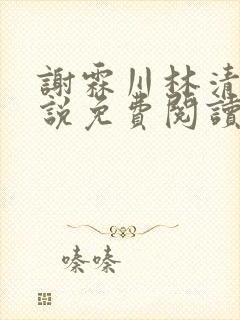 謝霖川林清
說免費閱讀
嗪嗪